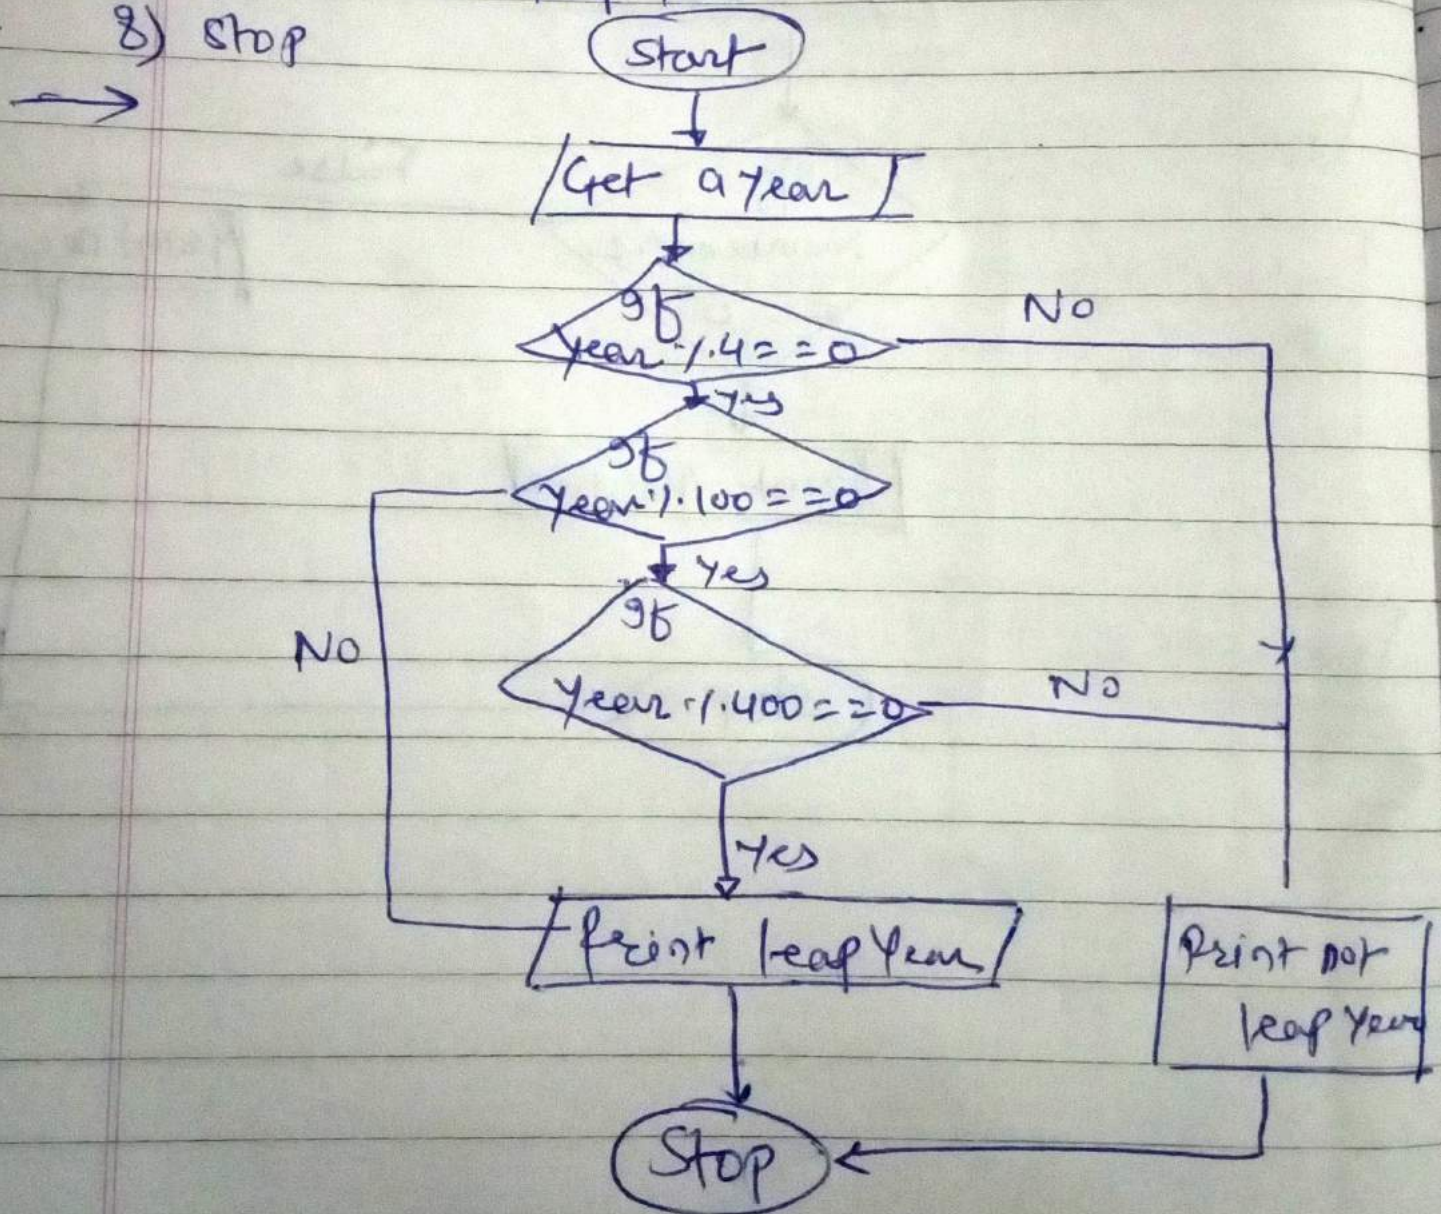 8) Stop
Start
Get a year
If
year % 4 == 0
No
Yes
If
Year % 100 == 0
Yes
No
If
Year % 400 == 0
No
Yes
Print leap Year
Print not
leap Year
Stop